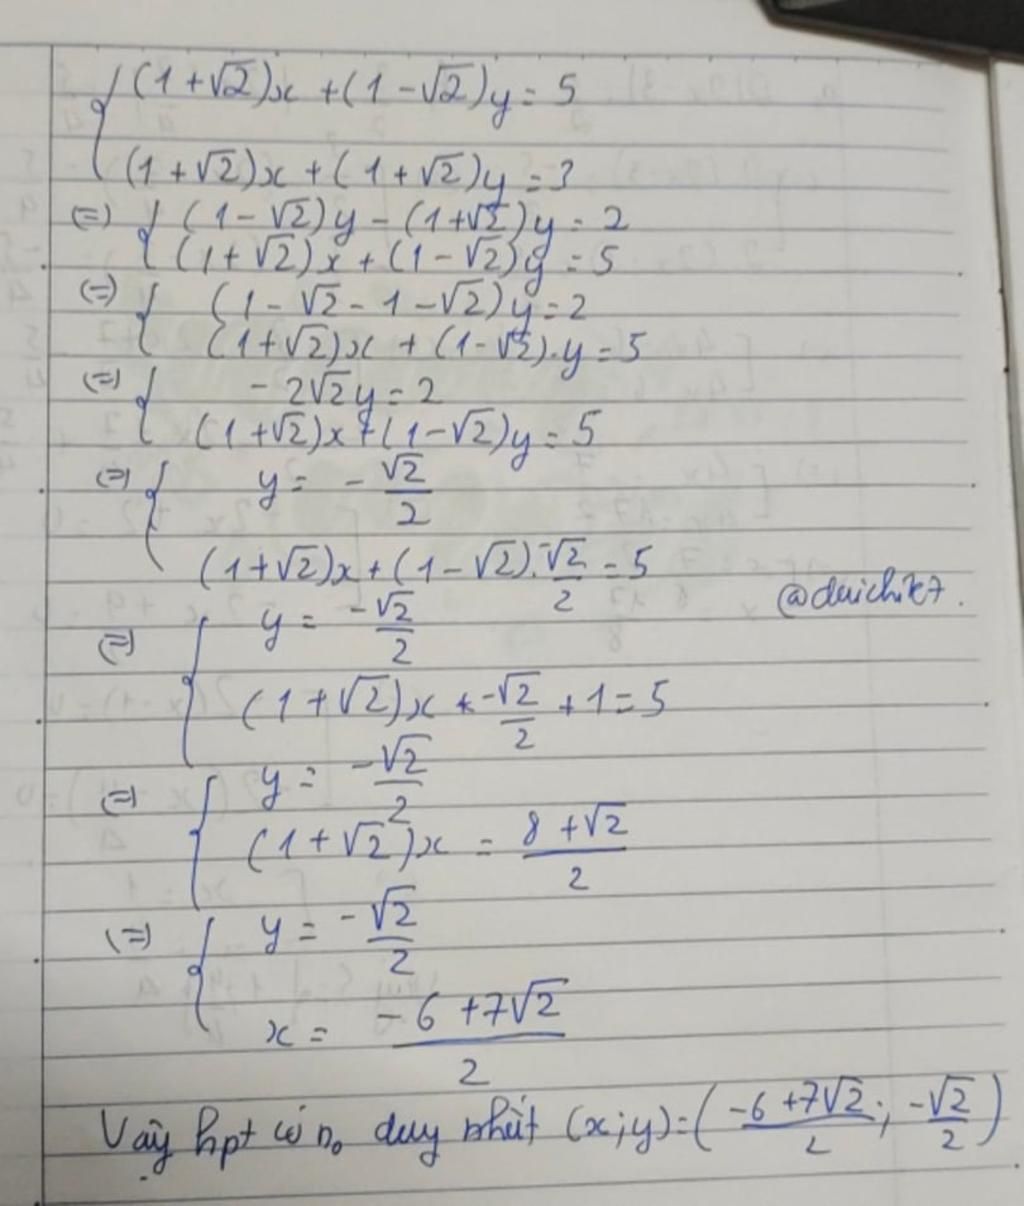 { (1+√2)x + (1-√2)y = 5
(1+√2)x + (1+√2)y = 3
(=) { (1-√2)y - (1+√2)y = 2
(1+√2)x + (1-√2)y = 5
(=) { (1-√2-1-√2)y = 2
(1+√2)x + (1-√2).y = 5
(=) { -2√2y = 2
(1+√2)x + (1-√2)y = 5
(=) { y = -√2/2
(1+√2)x + (1-√2).-√2/2 = 5
@daichik7.
(=) { y = -√2/2
(1+√2)x + -√2/2 + 1 = 5
(=) { y = -√2/2
(1+√2)x = (8+√2)/2
(=) { y = -√2/2
x = (-6+7√2)/2
Vậy hpt có n₀ duy nhất (x;y) = ((-6+7√2)/2; -√2/2)